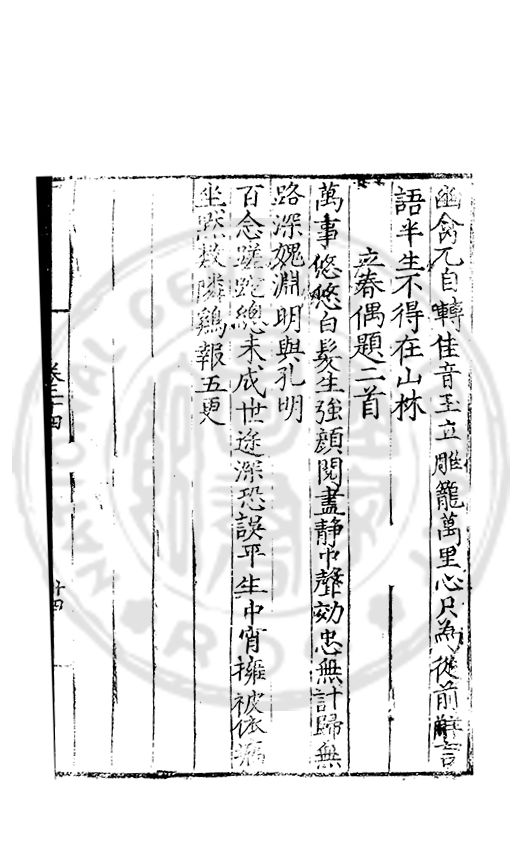 幽禽元自轉佳音玉立雕籠萬里心只為從前解言
語半生不得在山林
立春偶題二首
萬事悠悠白髮生強顏閱盡靜中聲效忠無計歸無
路深媿淵明與孔明
百念蹉跎總未成世途深恐誤平生中宵擁被依牆
坐默數鄰鷄報五更
卷二十四
十四